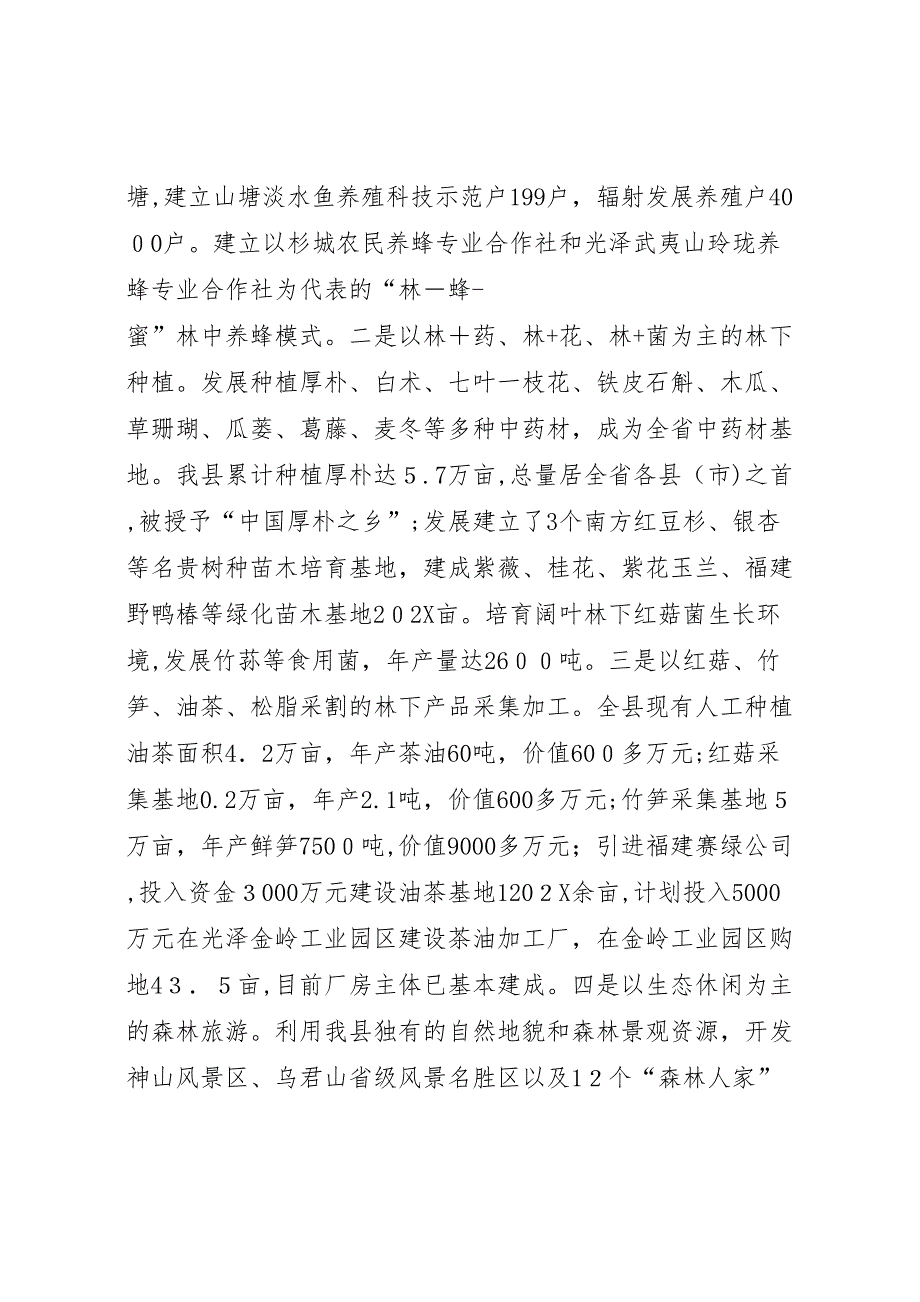 塘,建立山塘淡水鱼养殖科技示范户199户，辐射发展养殖户40
00户。建立以杉城农民养蜂专业合作社和光泽武夷山玲珑养
蜂专业合作社为代表的“林－蜂-
蜜”林中养蜂模式。二是以林＋药、林+花、林+菌为主的林下
种植。发展种植厚朴、白术、七叶一枝花、铁皮石斛、木瓜、
草珊瑚、瓜蒌、葛藤、麦冬等多种中药材，成为全省中药材基
地。我县累计种植厚朴达５.7万亩,总量居全省各县（市)之首
,被授予“中国厚朴之乡”;发展建立了3个南方红豆杉、银杏
等名贵树种苗木培育基地，建成紫薇、桂花、紫花玉兰、福建
野鸭椿等绿化苗木基地202X亩。培育阔叶林下红菇菌生长环
境,发展竹荪等食用菌，年产量达26００吨。三是以红菇、竹
笋、油茶、松脂采割的林下产品采集加工。全县现有人工种植
油茶面积4．2万亩，年产茶油60吨，价值60０多万元;红菇采
集基地0.2万亩，年产2.1吨，价值600多万元;竹笋采集基地５
万亩，年产鲜笋750０吨,价值9000多万元；引进福建赛绿公司
,投入资金３000万元建设油茶基地120２X余亩,计划投入5000
万元在光泽金岭工业园区建设茶油加工厂，在金岭工业园区购
地4３．５亩,目前厂房主体已基本建成。四是以生态休闲为主
的森林旅游。利用我县独有的自然地貌和森林景观资源，开发
神山风景区、乌君山省级风景名胜区以及1２个“森林人家”